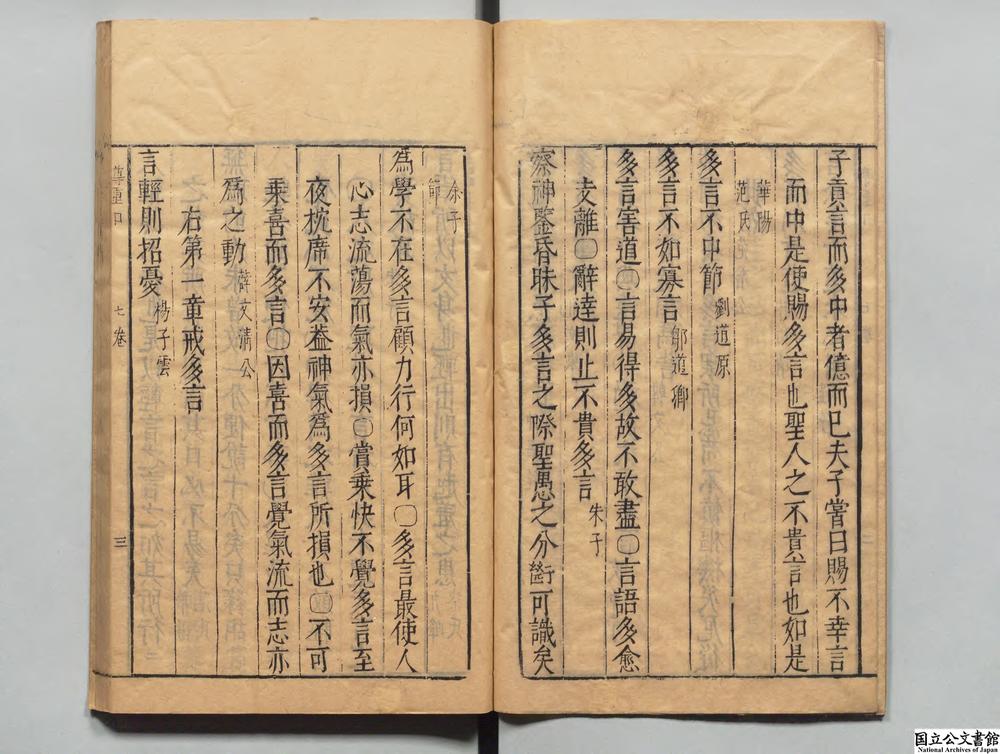 子貢言而多中者億而已夫子嘗曰賜不幸言
而中是使賜多言也聖人之不貴言也如是
華陽
范氏
多言不中節 劉道原
多言不如寡言 鄒道卿
多言害道〇言易得多故不敢盡〇言語多愈
支離〇辭達則止不貴多言 朱子
察神鑒昏昧予多言之際聖愚之分斷可識矣
余子
節
為學不在多言顧力行何如耳〇多言最使人
心志流蕩而氣亦損〇嘗乘快不覺多言至
夜枕席不安盖神氣為多言所損也〇不可
乘喜而多言〇因喜而多言覺氣流而志亦
為之動 薛文清公
右第一章戒多言
言輕則招憂 楊子雲
七卷
三
国立公文書館
National Archives of Japan